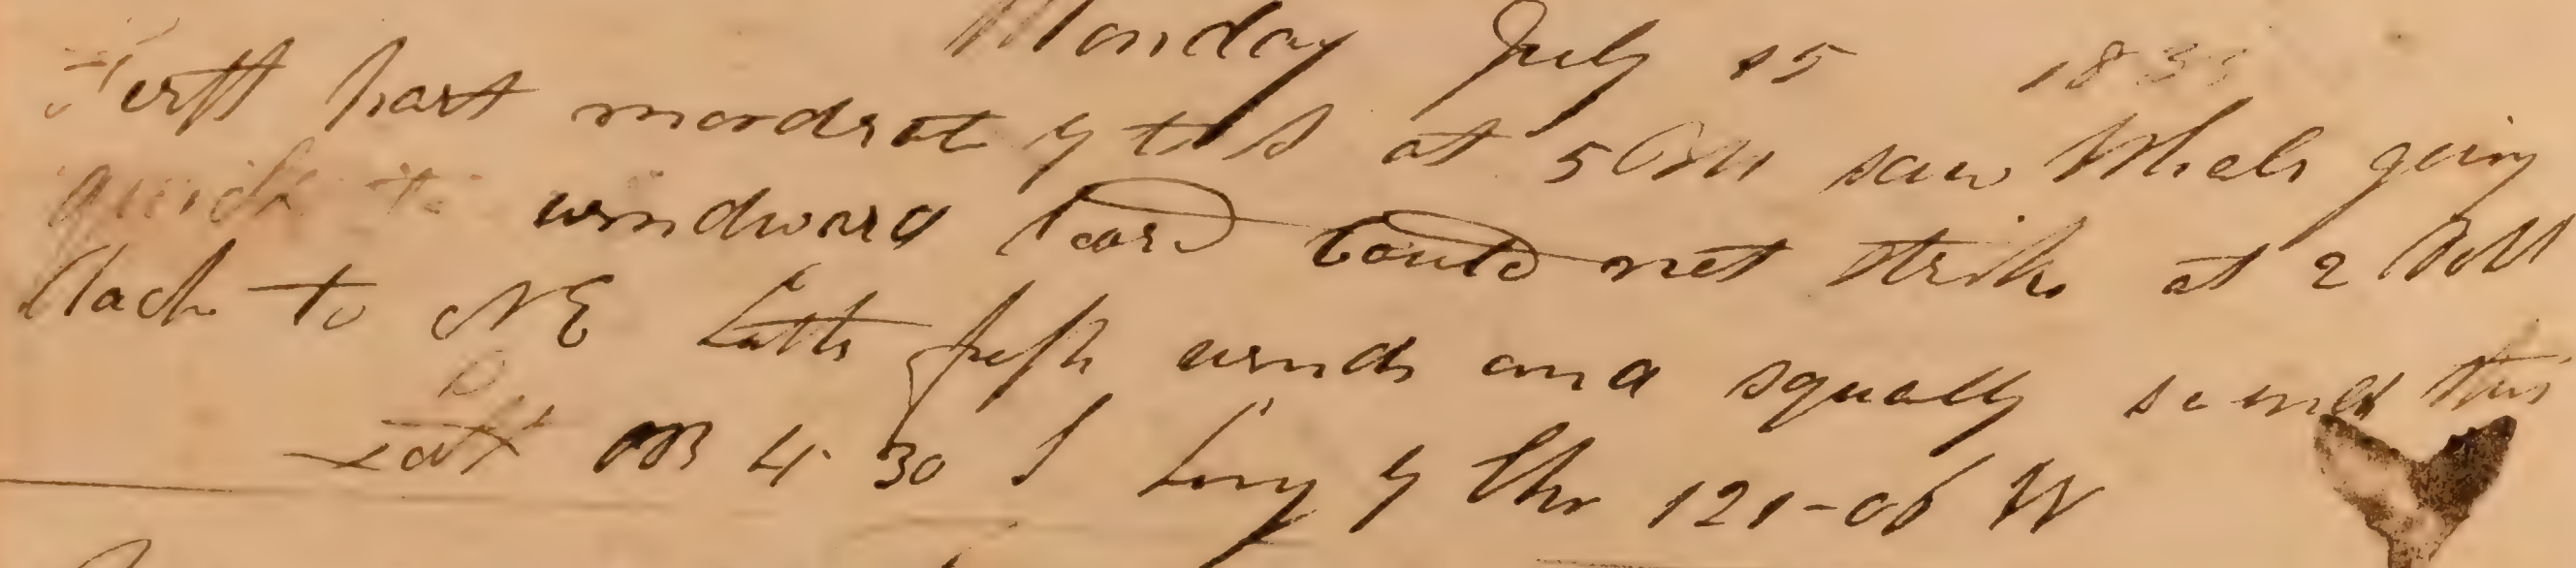 Monday July 15 183
Firstt part mordrat y tds at 5 PM saw Whals going
quick to windward loard Could not strike at 2 AM
tack to NE Latte fresh winds and squally so ends this
Latt OB 4 30 S Long y Chr 121-06 W